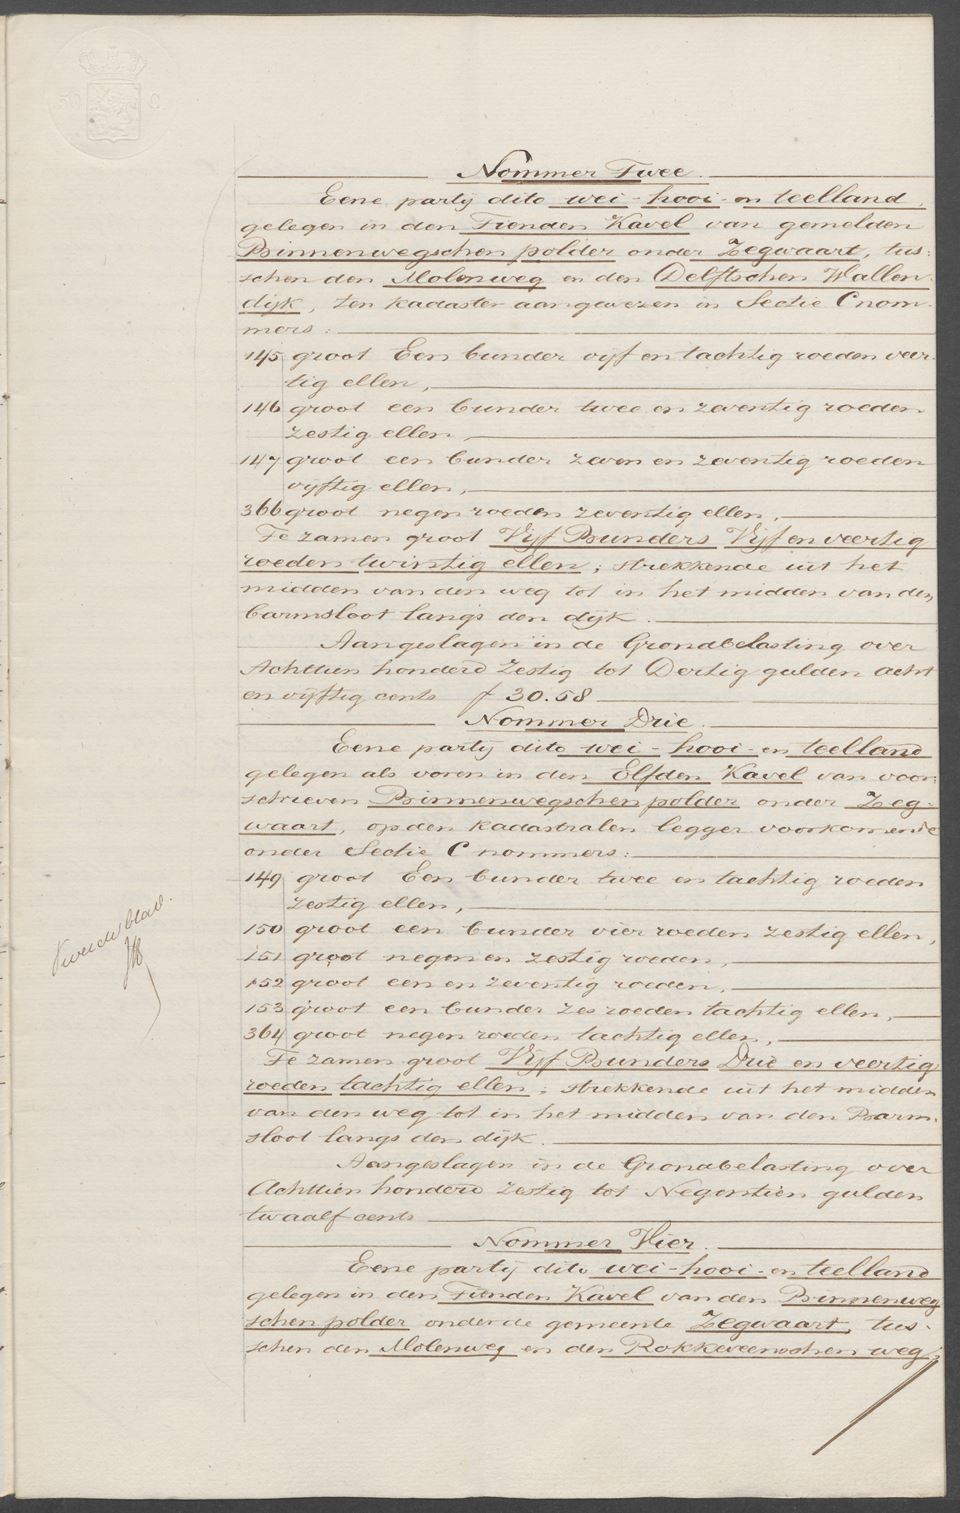 50 C.
Nommer Twee.
Eene partij dito wei- hooi- en teelland,
gelegen in den Tienden Kavel van gemelden
Binnenwegschen polder onder Zegwaart, tus-
schen den Molenweg en den Delftschen Wallen-
dijk, ten kadaster aangewezen in Sectie C nom-
mers:
145 groot Een bunder vijf en tachtig roeden veer-
tig ellen,
146 groot een bunder twee en zeventig roeden
zestig ellen,
147 groot een bunder zeven en zeventig roeden
vijftig ellen,
366 groot negen roeden zeventig ellen.
Te zamen groot Vijf Bunders Vijf en veertig
roeden twintig ellen; strekkende uit het
midden van den weg tot in het midden van den
barmsloot langs den dijk.
Aangeslagen in de Grondbelasting over
Achttien honderd Zestig tot Dertig gulden acht
en vijftig cents f 30.58
Nommer Drie.
Eene partij dito wei- hooi- en teelland
gelegen als voren in den Elfden Kavel van voor-
schreven Binnenwegschen polder onder Zeg-
waart, op den kadastralen legger voorkomende
onder Sectie C nommers:
149 groot Een bunder twee en tachtig roeden
zestig ellen,
150 groot een bunder vier roeden zestig ellen,
151 groot negen en zestig roeden,
152 groot een en zeventig roeden,
153 groot een bunder zes roeden tachtig ellen,
364 groot negen roeden tachtig ellen,
Te zamen groot Vijf Bunders Drie en veertig
roeden tachtig ellen; strekkende uit het midden
van den weg tot in het midden van den Barm-
sloot langs den dijk.
Aangeslagen in de Grondbelasting over
Achttien honderd Zestig tot Negentien gulden
twaalf cents
Tweede blad.
Nommer Vier.
Eene partij dito wei- hooi- en teelland
gelegen in den Tienden Kavel van den Binnenweg-
schen polder onder de gemeente Zegwaart, tus-
schen den Molenweg en den Rokkeveenschen weg;